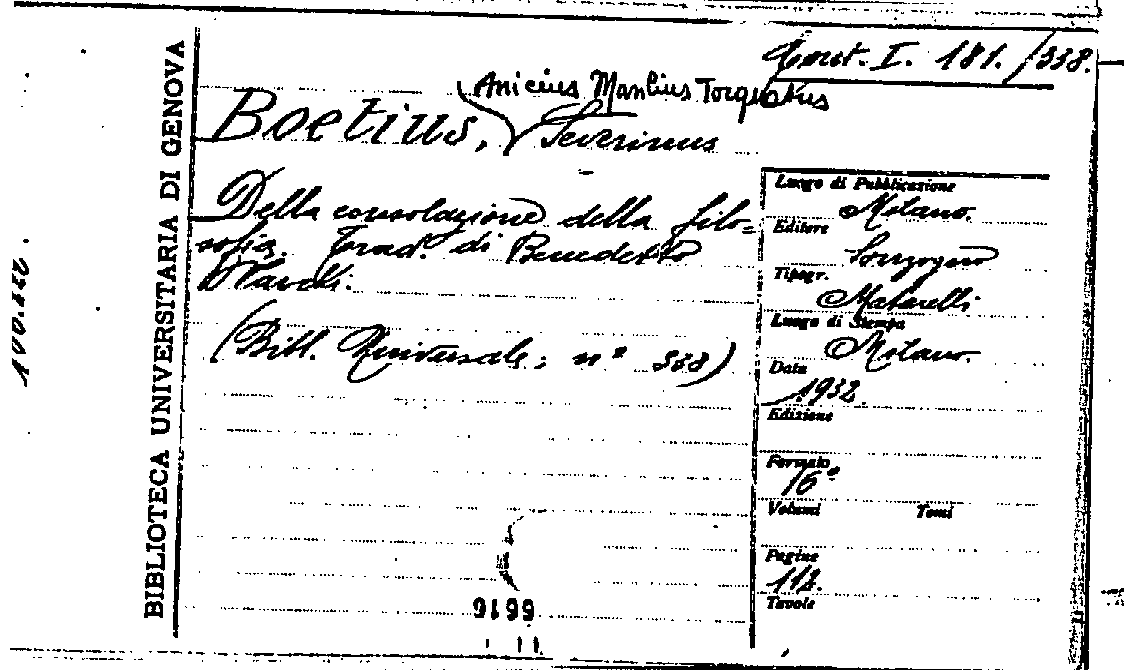 Cont. I. 181. /338.
Anicius Manlius Torquatus
Boetius, Severinus
Della consolazione della filo=
sofia. Trad. di Benedetto
Varchi.
(Bibl. Universale; n° 338)
BIBLIOTECA UNIVERSITARIA DI GENOVA
Luogo di Pubblicazione
Milano.
Editore
Sonzogno
Tipogr.
Matarelli
Luogo di Stampa
Milano.
Data
1932
Edizione
Formato
16°
Volumi Tomi
Pagine
112.
Tavole